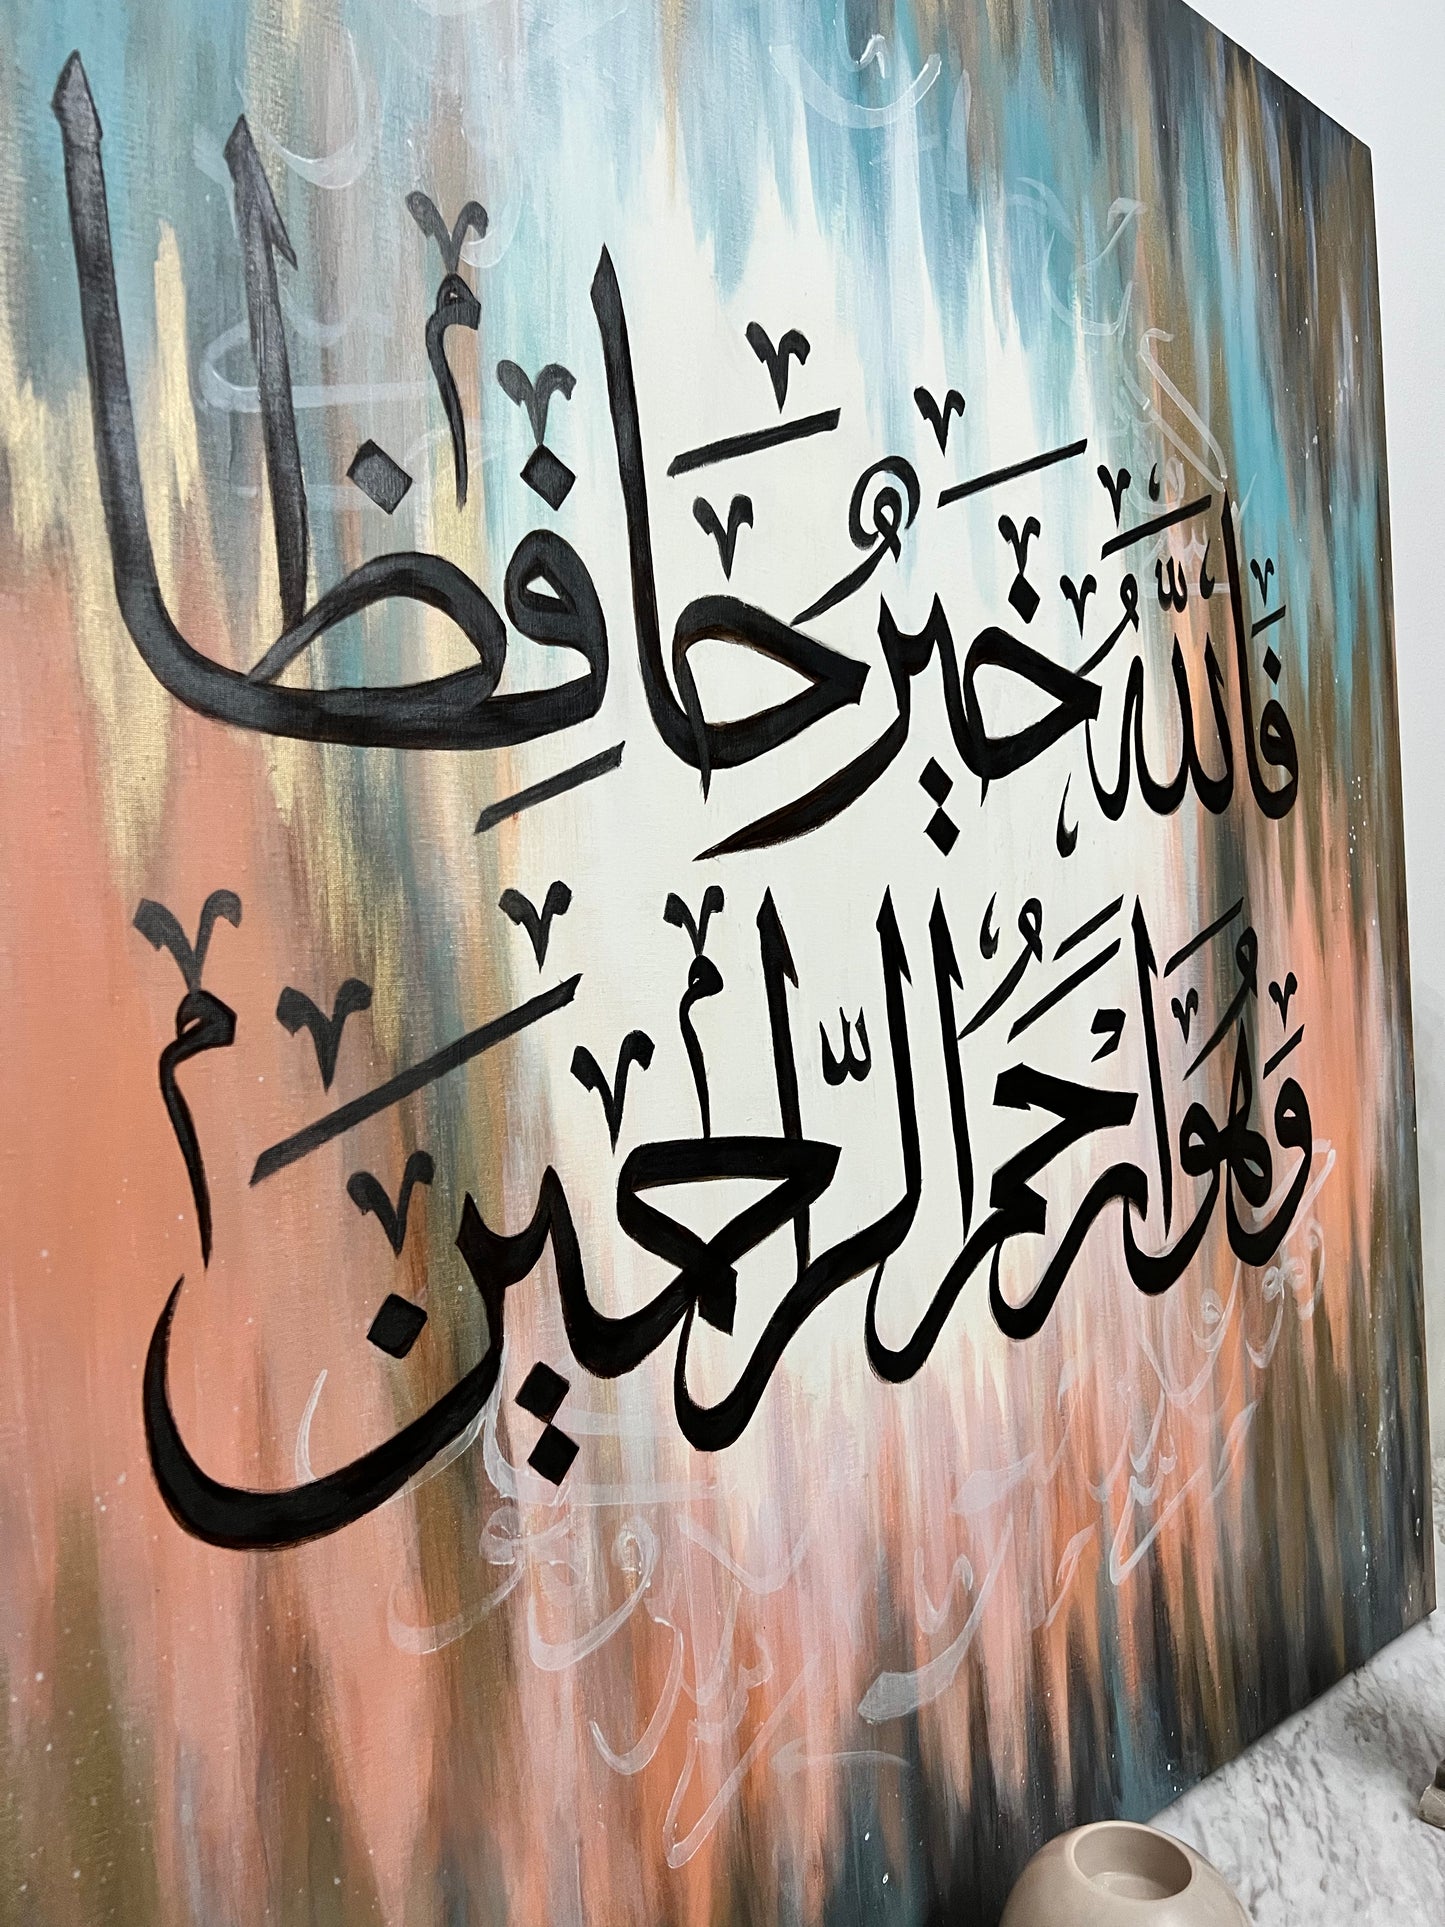 فَاللّٰهُ خَيْرٌ حَافِظًا
وَهُوَ أَرْحَمُ الرَّاحِمِينَ